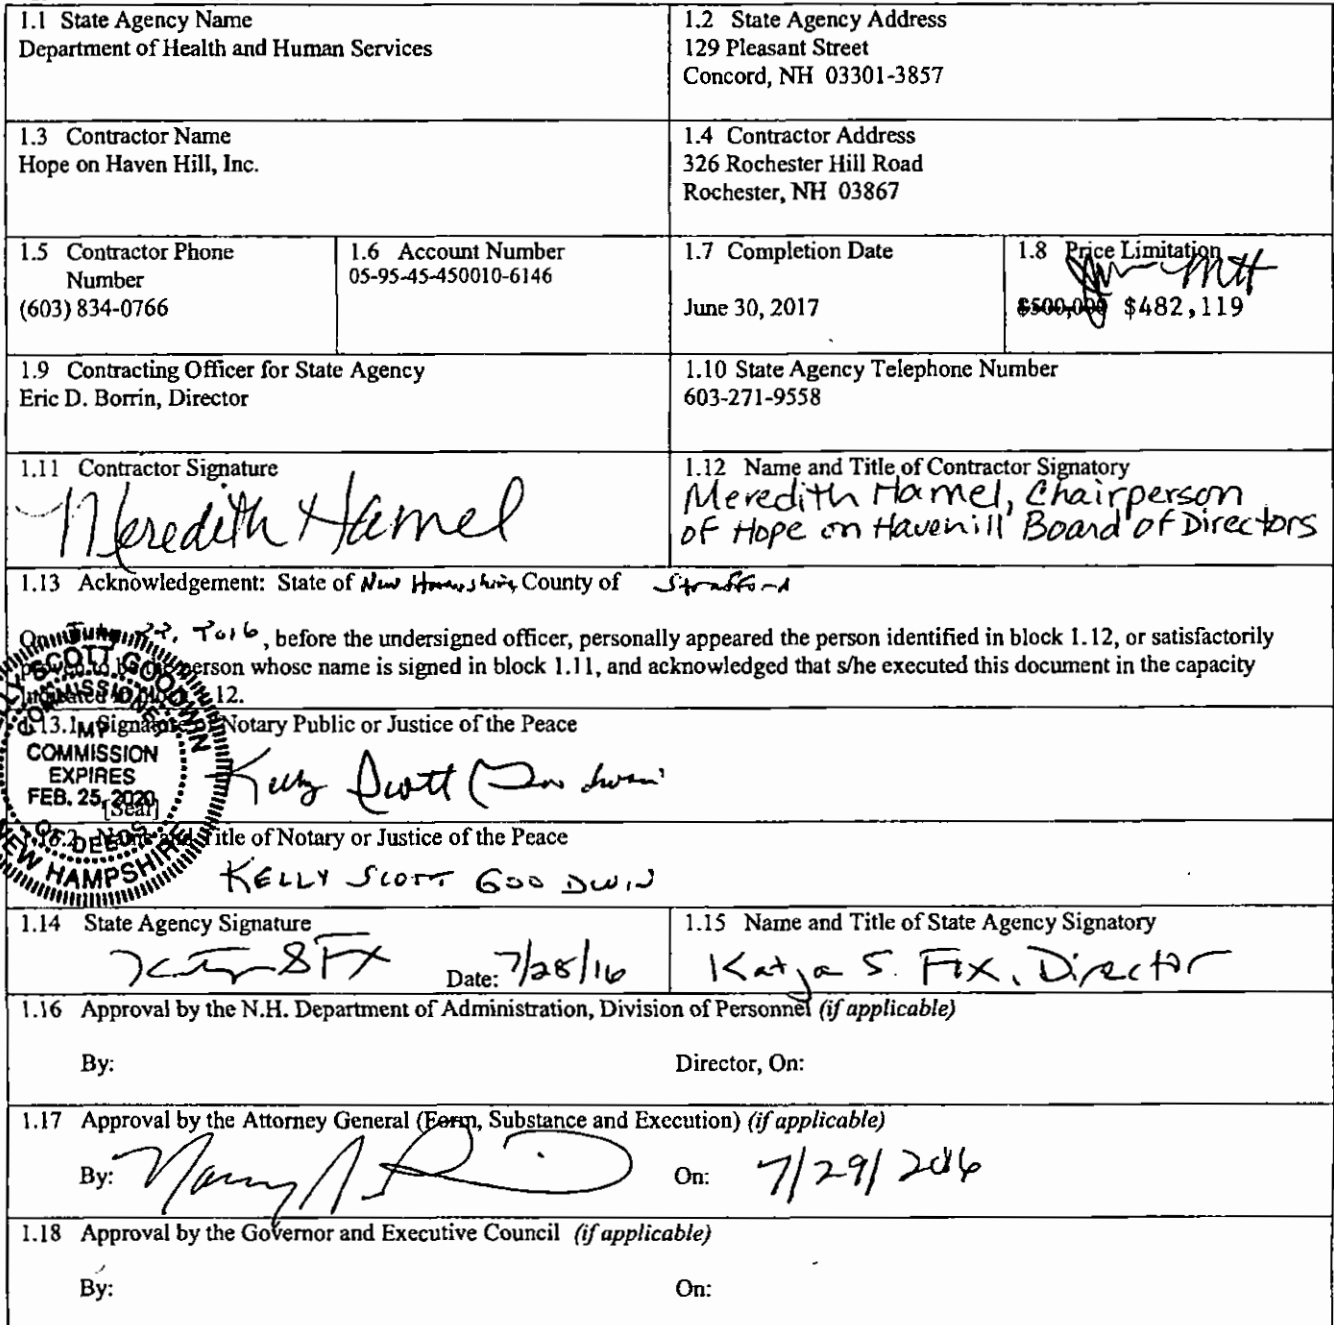 1.1 State Agency Name
Department of Health and Human Services
1.2 State Agency Address
129 Pleasant Street
Concord, NH 03301-3857
1.3 Contractor Name
Hope on Haven Hill, Inc.
1.4 Contractor Address
326 Rochester Hill Road
Rochester, NH 03867
1.5 Contractor Phone
Number
(603) 834-0766
1.6 Account Number
05-95-45-450010-6146
1.7 Completion Date
June 30, 2017
1.8 Price Limitation
$500,000 $482,119
1.9 Contracting Officer for State Agency
Eric D. Borrin, Director
1.10 State Agency Telephone Number
603-271-9558
1.11 Contractor Signature
Meredith Hamel
1.12 Name and Title of Contractor Signatory
Meredith Hamel, Chairperson
of Hope on Havenill Board of Directors
1.13 Acknowledgement: State of New Hampshire, County of Strafford
On 2016, before the undersigned officer, personally appeared the person identified in block 1.12, or satisfactorily
person whose name is signed in block 1.11, and acknowledged that s/he executed this document in the capacity
12.
1.13.1 Signature of Notary Public or Justice of the Peace
Kelly Scott Goodwin
SCOTT GOODWIN
COMMISSIONER
MY
COMMISSION
EXPIRES
FEB. 25, 2020
[Seal]
OF DEEDS
NEW HAMPSHIRE
Name and Title of Notary or Justice of the Peace
KELLY SCOTT GOODWIN
1.14 State Agency Signature
Date: 7/28/16
1.15 Name and Title of State Agency Signatory
Katja S. Fox, Director
1.16 Approval by the N.H. Department of Administration, Division of Personnel (if applicable)
By: Director, On:
1.17 Approval by the Attorney General (Form, Substance and Execution) (if applicable)
By: On: 7/29/2016
1.18 Approval by the Governor and Executive Council (if applicable)
By: On: